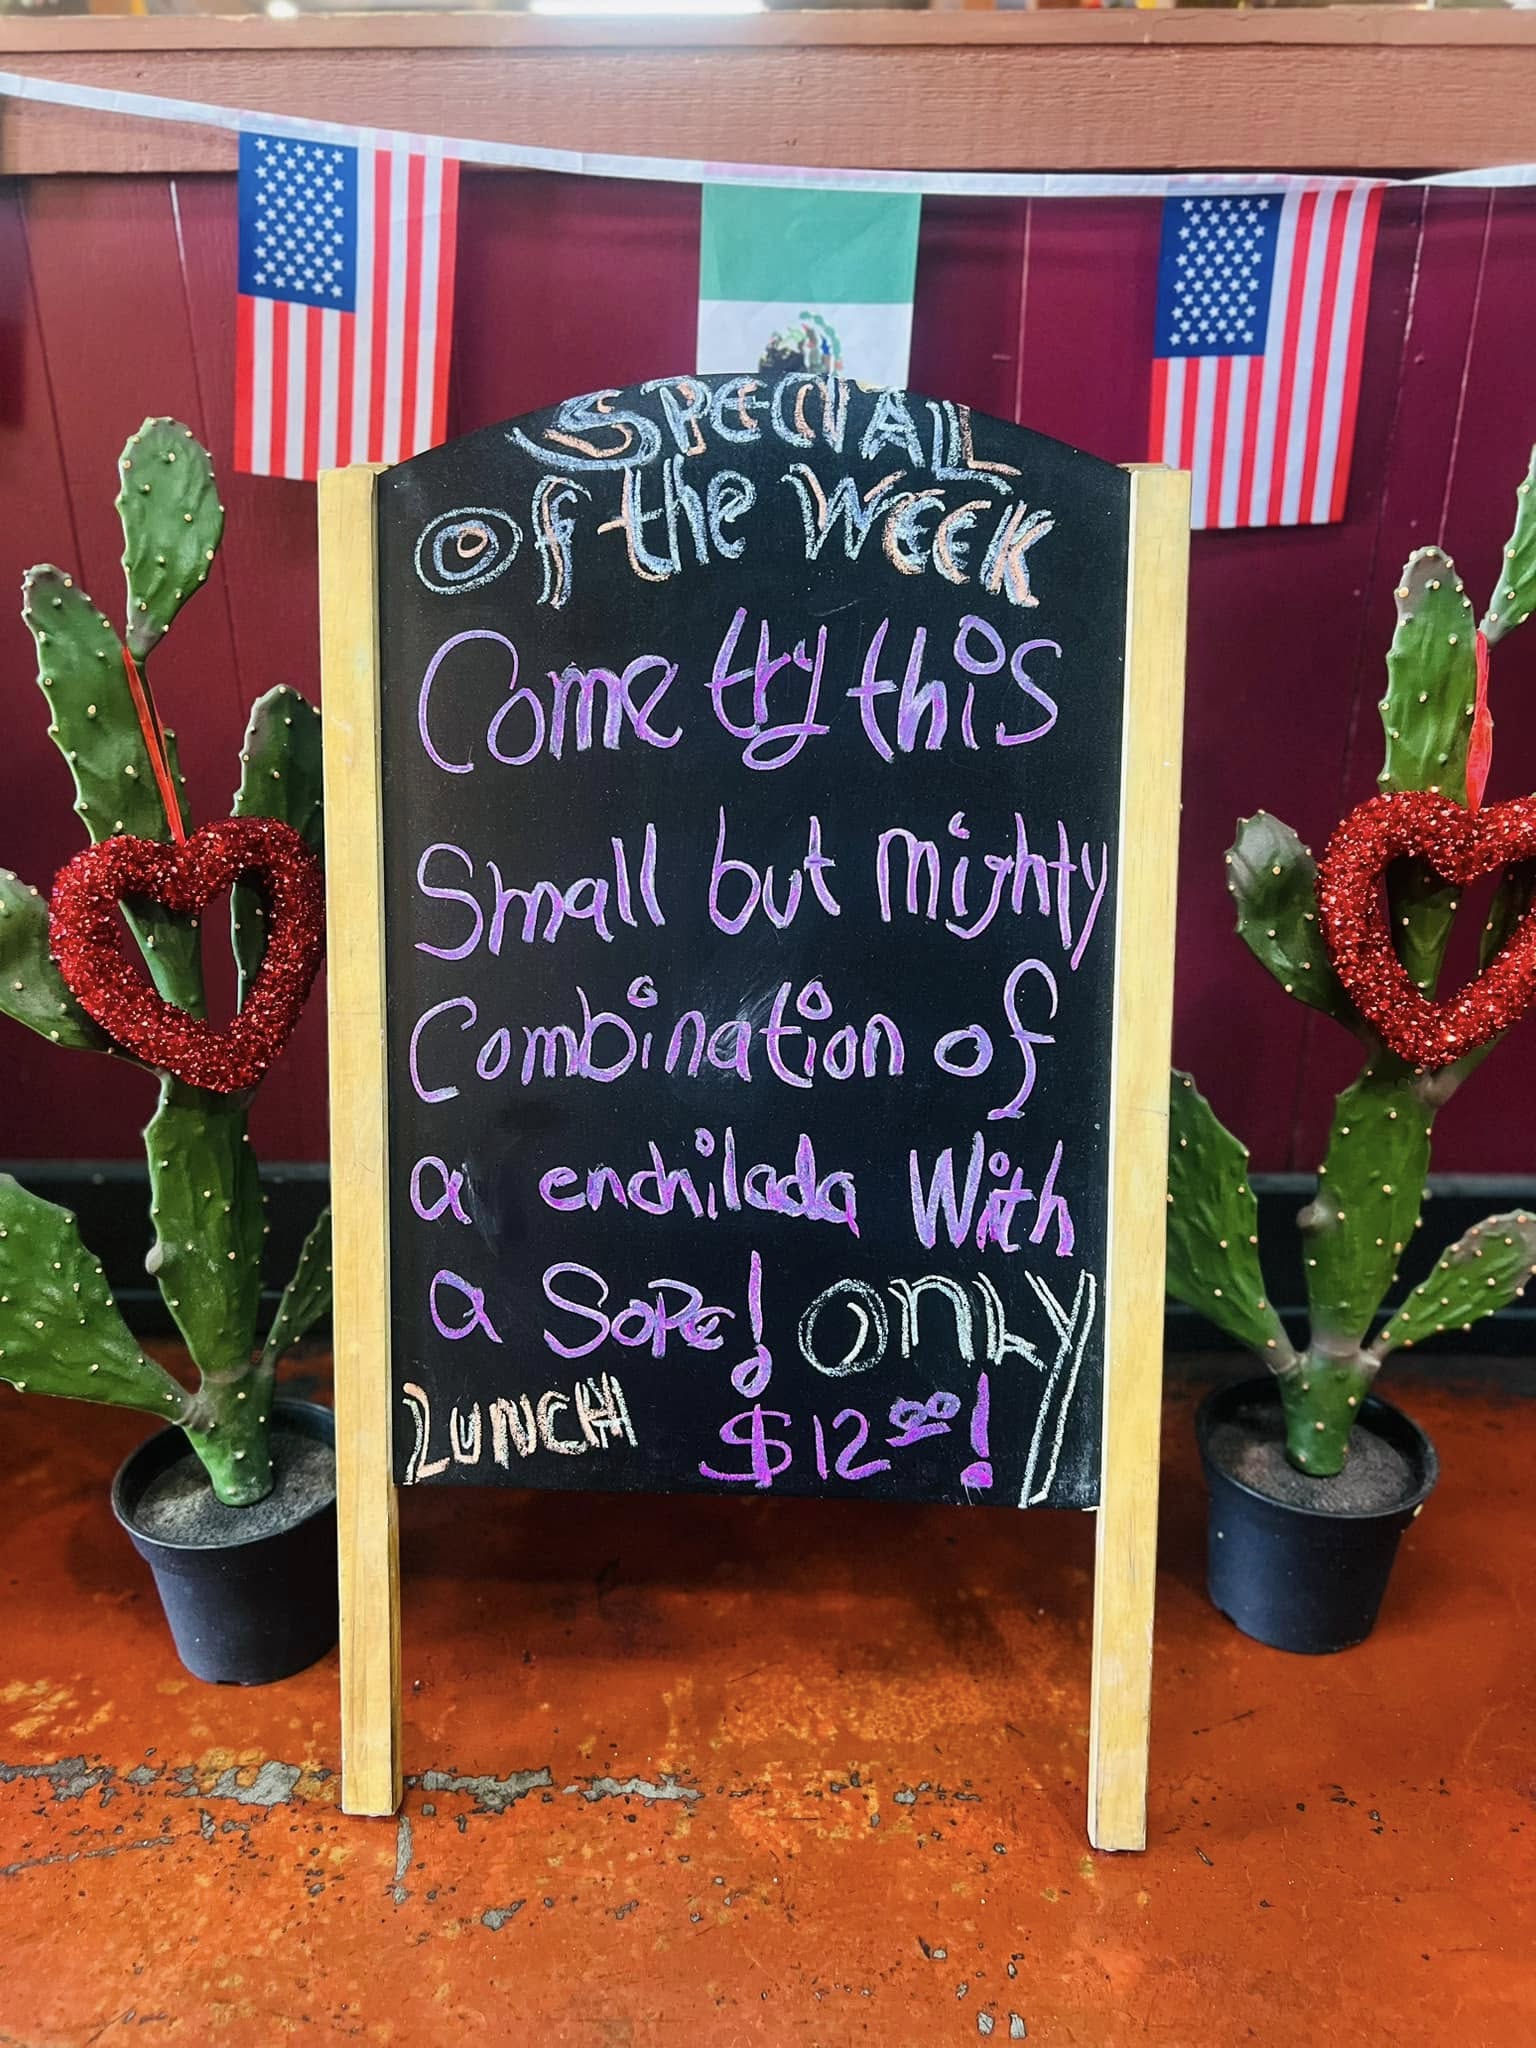 SPECIAL
Of the WEEK
Come try this
Small but mighty
Combination of
a enchilada With
a SOPE! ONLY
LUNCH $12.00!